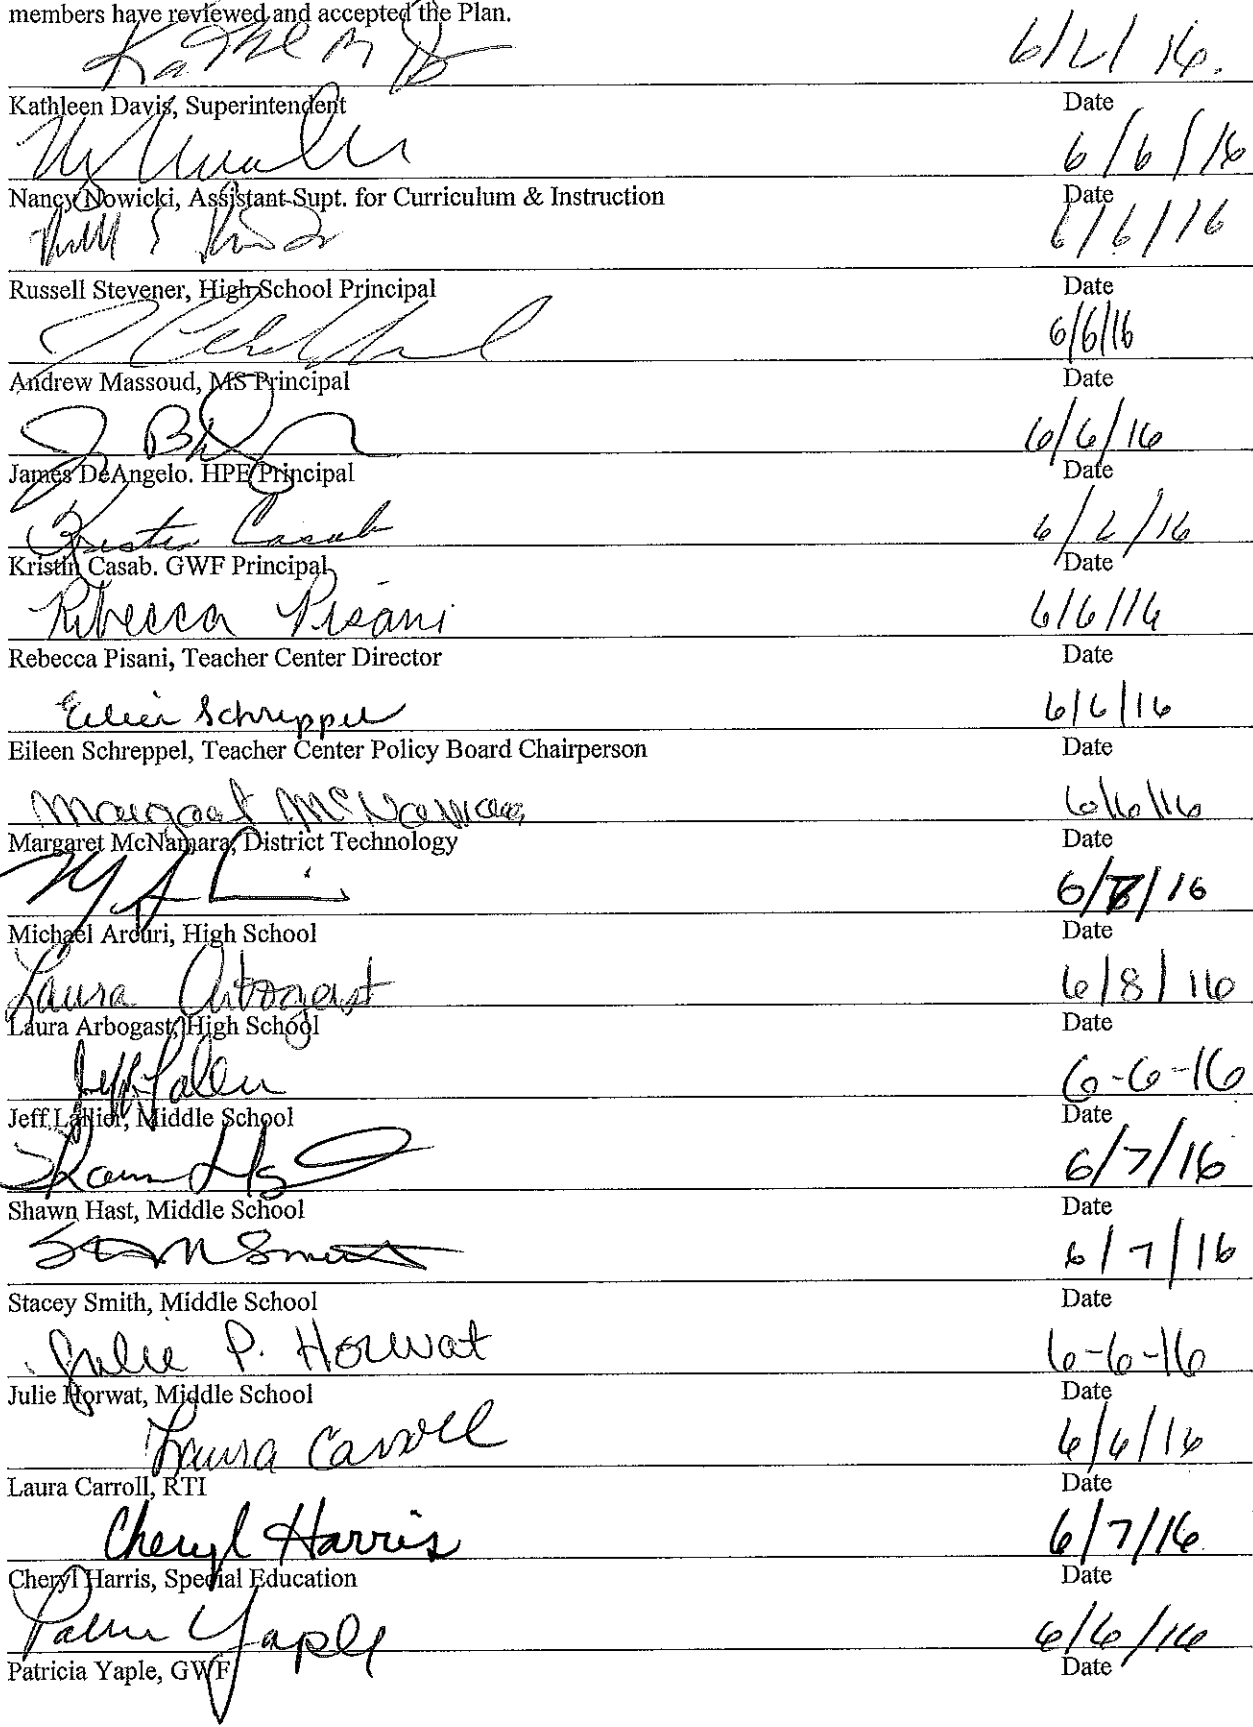 members have reviewed and accepted the Plan.
6/6/16.
Kathleen Davis, Superintendent Date
6/6/16
Nancy Nowicki, Assistant Supt. for Curriculum & Instruction Date
6/6/16
Russell Stevener, High School Principal Date
6/6/16
Andrew Massoud, MS Principal Date
6/6/16
James DeAngelo. HPE Principal Date
Kristin Casab 6/6/16
Kristin Casab. GWF Principal Date
Rebecca Pisani 6/6/16
Rebecca Pisani, Teacher Center Director Date
Eileen Schreppel 6/6/16
Eileen Schreppel, Teacher Center Policy Board Chairperson Date
Margaret McNamara 6/6/16
Margaret McNamara, District Technology Date
6/8/16
Michael Arcuri, High School Date
Laura Arbogast 6/8/16
Laura Arbogast, High School Date
Jeff Lallier 6-6-16
Jeff Lallier, Middle School Date
6/7/16
Shawn Hast, Middle School Date
Smith 6/7/16
Stacey Smith, Middle School Date
Julie P. Horwat 6-6-16
Julie Horwat, Middle School Date
Laura Carroll 6/6/16
Laura Carroll, RTI Date
Cheryl Harris 6/7/16
Cheryl Harris, Special Education Date
Yaple 6/6/16
Patricia Yaple, GWF Date